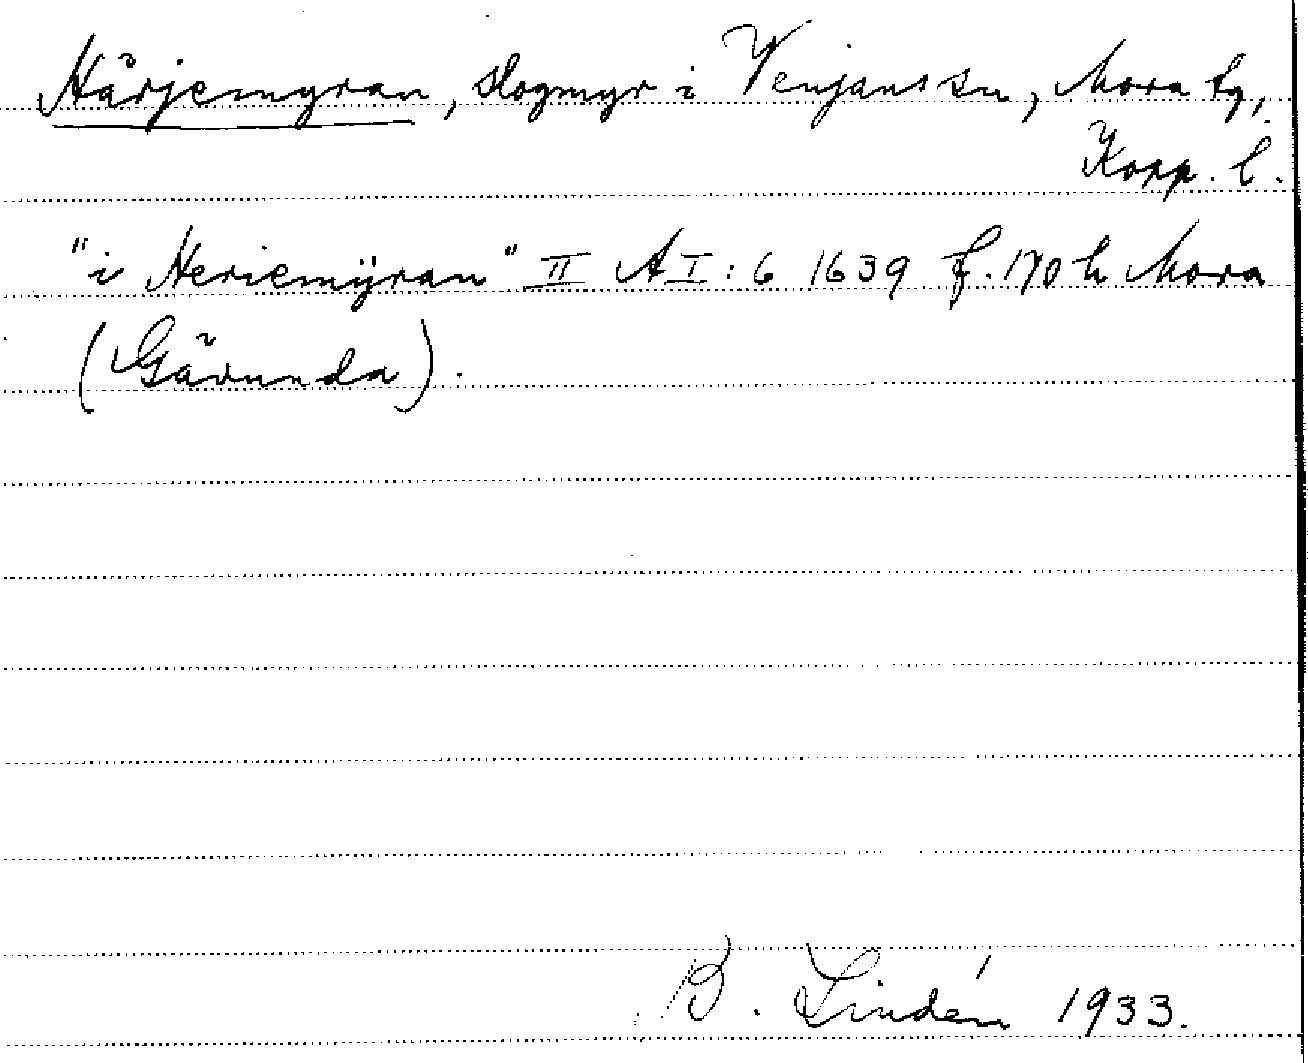 Härjemyran, slogmyr i Venjans sn, Mora tg,
Kopp. l.
"i Heriemÿran" II A I: 6 1639 f. 170 h Mora
(Gävunda).
B. Lindén 1933.